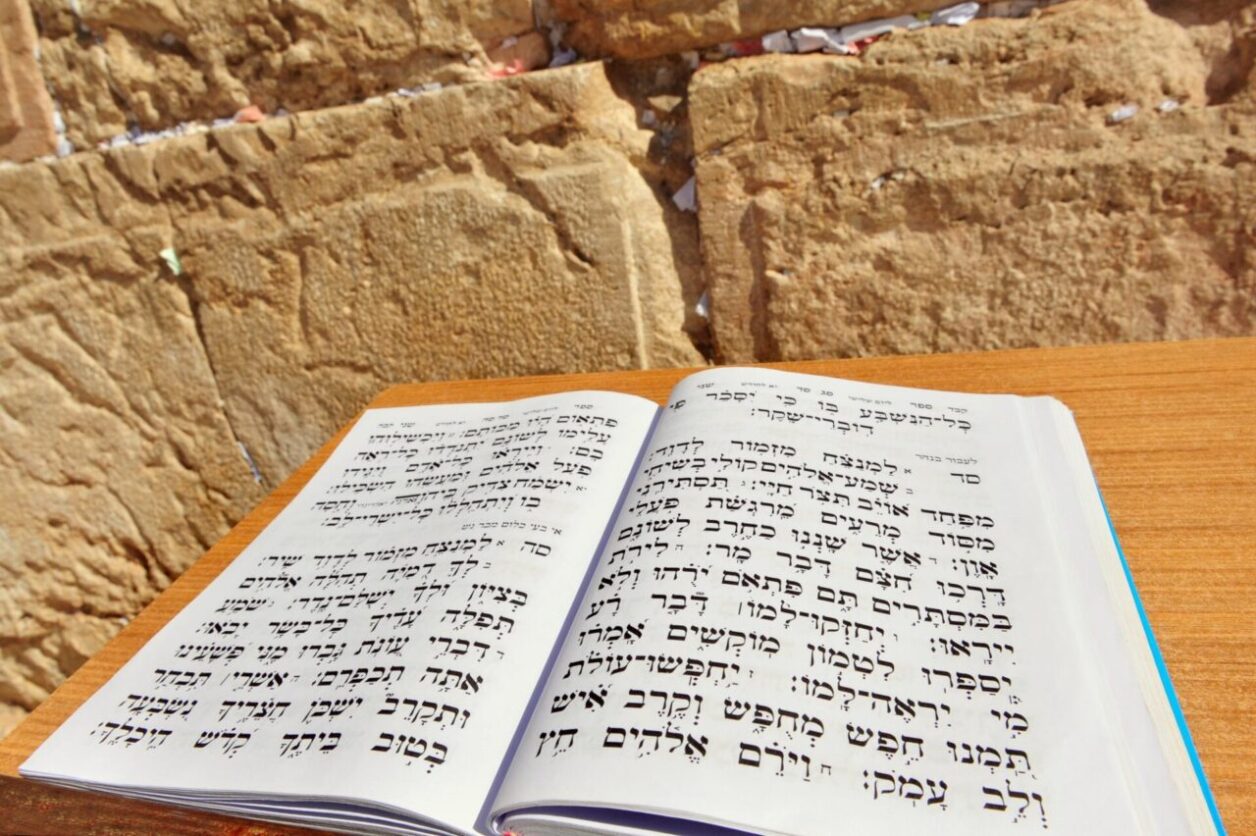 כָּל־הַנִּשְׁבָּע בּוֹ כִּי יִסָּכֵר פִּי
דוֹבְרֵי־שָׁקֶר:
לעבור בנהר
סד א לַמְנַצֵּחַ מִזְמוֹר לְדָוִד:
ב שְׁמַע־אֱלֹהִים קוֹלִי בְשִׂיחִי
מִפַּחַד אוֹיֵב תִּצֹּר חַיָּי: ג תַּסְתִּירֵנִי
מִסּוֹד מְרֵעִים מֵרִגְשַׁת פֹּעֲלֵי
אָוֶן: ד אֲשֶׁר שָׁנְנוּ כַחֶרֶב לְשׁוֹנָם
דָּרְכוּ חִצָּם דָּבָר מָר: ה לִירֹת
בַּמִּסְתָּרִים תָּם פִּתְאֹם יֹרֻהוּ וְלֹא
יִירָאוּ: ו יְחַזְּקוּ־לָמוֹ דָּבָר רָע
יְסַפְּרוּ לִטְמוֹן מוֹקְשִׁים אָמְרוּ
מִי יִרְאֶה־לָּמוֹ: ז יַחְפְּשׂוּ־עוֹלֹת
תַּמְנוּ חֵפֶשׂ מְחֻפָּשׂ וְקֶרֶב אִישׁ
וְלֵב עָמֹק: ח וַיֹּרֵם אֱלֹהִים חֵץ
פִּתְאוֹם הָיוּ מַכּוֹתָם: ט וַיַּכְשִׁילוּהוּ
עָלֵימוֹ לְשׁוֹנָם יִתְנֹדֲדוּ כָּל־רֹאֵה
בָם: י וַיִּירְאוּ כָּל־אָדָם וַיַּגִּידוּ
פֹּעַל אֱלֹהִים וּמַעֲשֵׂהוּ הִשְׂכִּילוּ:
יא יִשְׂמַח צַדִּיק בַּיהוָה וְחָסָה
בוֹ וְיִתְהַלְלוּ כָּל־יִשְׁרֵי־לֵב:
סה א לַמְנַצֵּחַ מִזְמוֹר לְדָוִד שִׁיר:
ב לְךָ דֻמִיָּה תְהִלָּה אֱלֹהִים
בְּצִיּוֹן וּלְךָ יְשֻׁלַּם־נֶדֶר: ג שֹׁמֵעַ
תְּפִלָּה עָדֶיךָ כָּל־בָּשָׂר יָבֹאוּ:
ד דִּבְרֵי עֲוֺנֹת גָּבְרוּ מֶנִּי פְּשָׁעֵינוּ
אַתָּה תְכַפְּרֵם: ה אַשְׁרֵי תִּבְחַר
וּתְקָרֵב יִשְׁכֹּן חֲצֵרֶיךָ נִשְׂבְּעָה
בְּטוּב בֵּיתֶךָ קְדֹשׁ הֵיכָלֶךָ: